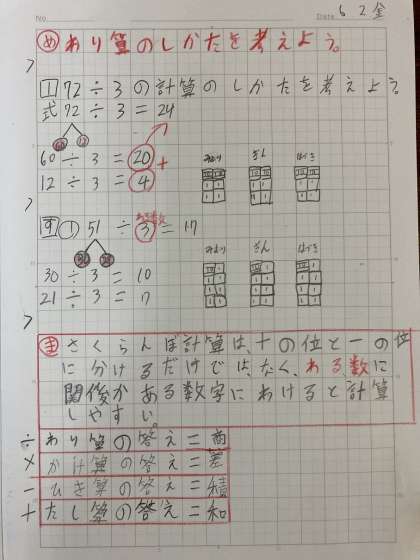 No.
Date 6 2 金
め わり算のしかたを考えよう。
1 72÷3の計算のしかたを考えよう。
式 72÷3=24
60 12
60÷3=20
+
12÷3=4
み
1 51÷3=17
わる数
30 21
30÷3=10
21÷3=7
ま さくらんぼ計算は、十の位と一の位
に分けるだけではなく、わる数に
関係がある数字にわけると計算
しやすい。
÷ わり算の答え=商
× かけ算の答え=差
- ひき算の答え=積
+ たし算の答え=和